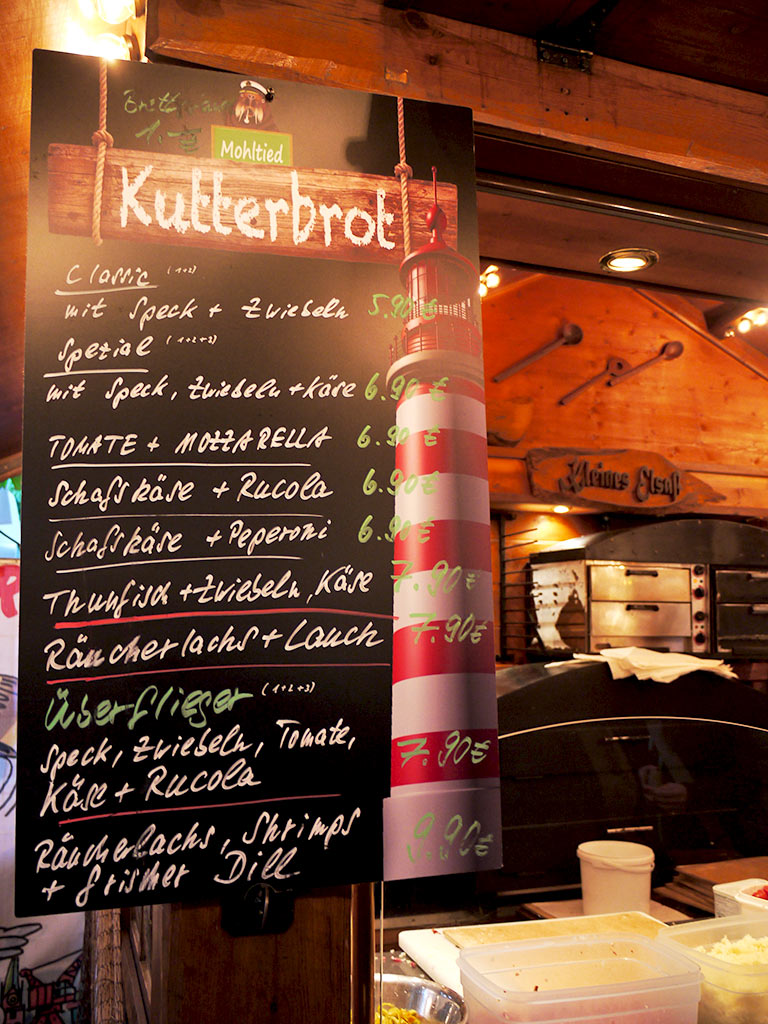 1.-€
Mohltied
Kutterbrot
Classic (1+2)
mit Speck + Zwiebeln 5.90 €
Spezial (1+2+3)
mit Speck, Zwiebeln + Käse 6.90 €
TOMATE + MOZZARELLA 6.90 €
Schafskäse + Rucola 6.90 €
Schafskäse + Peperoni 6.90 €
Thunfisch + Zwiebeln, Käse 7.90 €
Räucherlachs + Lauch 7.90 €
Überflieger (1+2+3)
Speck, Zwiebeln, Tomate,
Käse + Rucola 7.90 €
Räucherlachs, Shrimps
+ frischer Dill 9.90 €
Kleines Elsaß